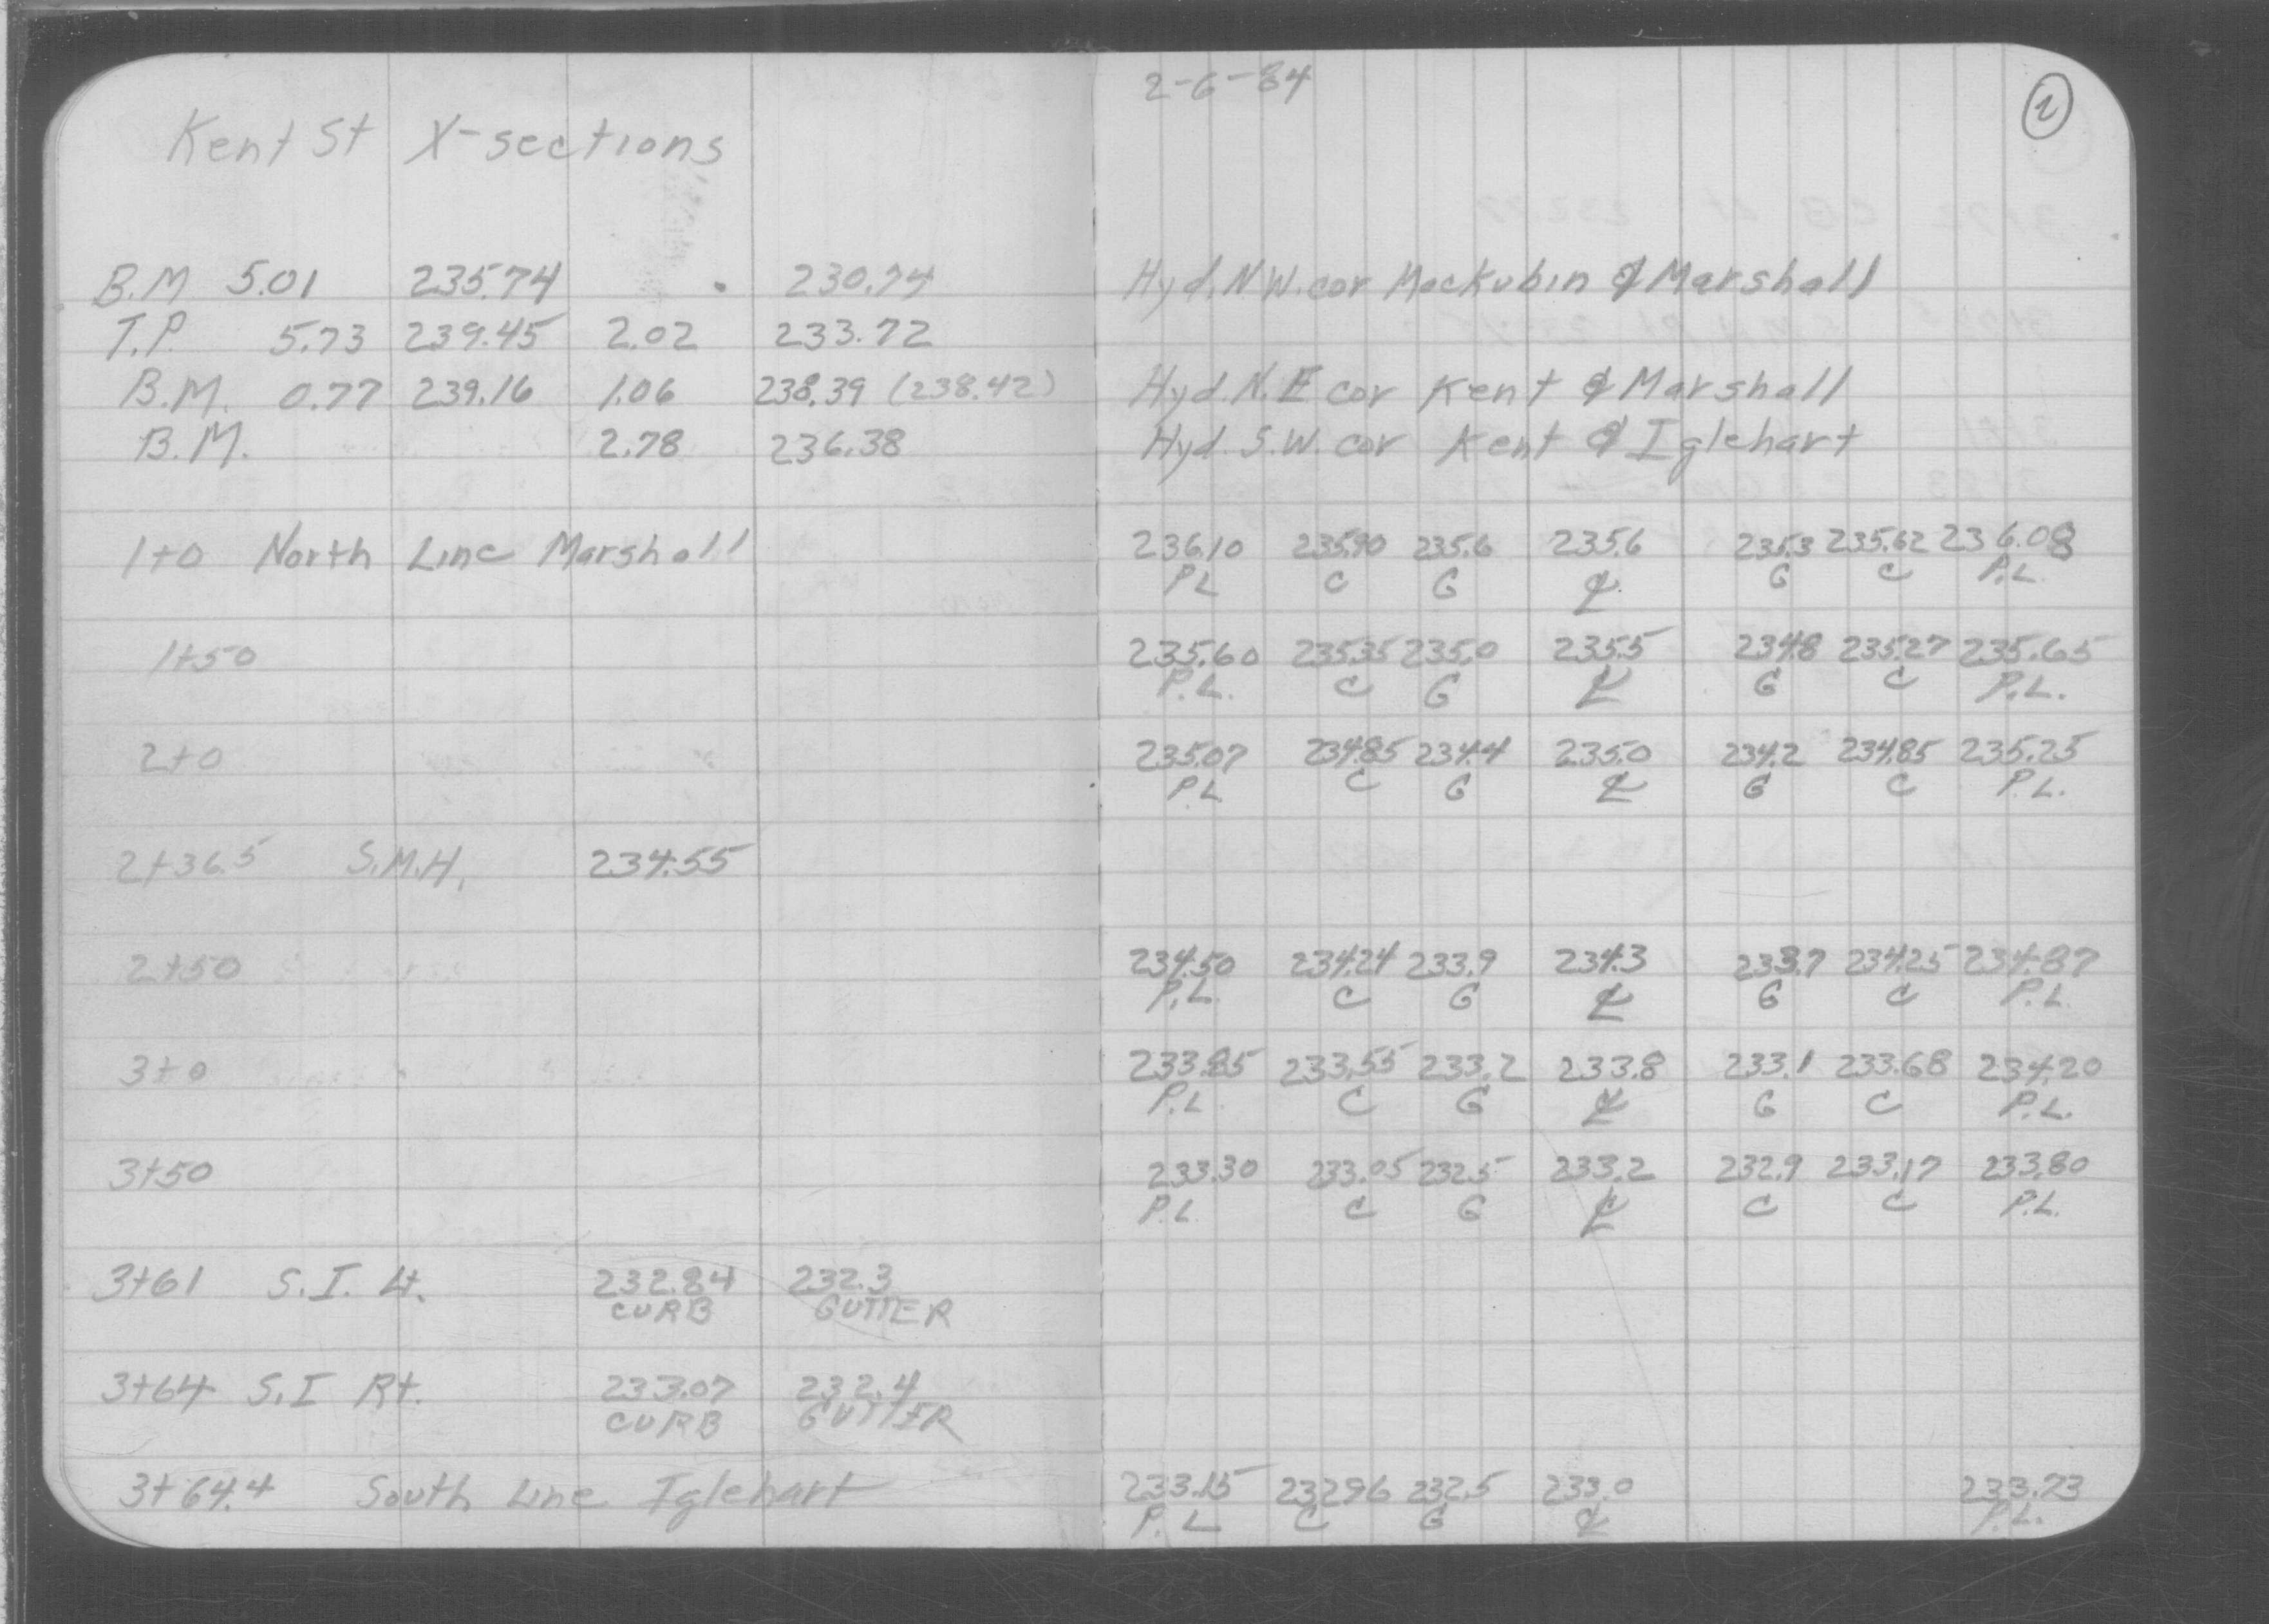 2-6-84
2
Kent St X-sections
B.M 5.01 235.74 230.74 Hyd. N.W. cor Mackubin & Marshall
T.P. 5.73 239.45 2.02 233.72
B.M. 0.77 239.16 1.06 238.39 (238.42) Hyd. N.E cor Kent & Marshall
B.M. 2.78 236.38 Hyd. S.W. cor Kent & Iglehart
1+0 North Line Marshall 236.10 235.90 235.6 235.6 235.3 235.62 236.08
P.L C G ℄ G C P.L.
1+50 235.60 235.35 235.0 235.5 234.8 235.27 235.65
P.L. C G ℄ G C P.L.
2+0 235.07 234.85 234.4 235.0 234.2 234.85 235.25
P.L C G ℄ G C P.L.
2+36.5 S.M.H. 234.55
2+50 234.50 234.24 233.9 234.3 233.7 234.25 234.87
P.L. C G ℄ G C P.L.
3+0 233.85 233.55 233.2 233.8 233.1 233.68 234.20
P.L. C G ℄ G C P.L.
3+50 233.30 233.05 232.5 233.2 232.9 233.17 233.80
P.L. C G ℄ C C P.L.
3+61 S.I. Lt. 232.84 232.3
CURB GUTTER
3+64 S.I Rt. 233.07 232.4
CURB GUTTER
3+64.4 South Line Iglehart 233.15 232.96 232.5 233.0 233.73
P.L C G ℄ P.L.